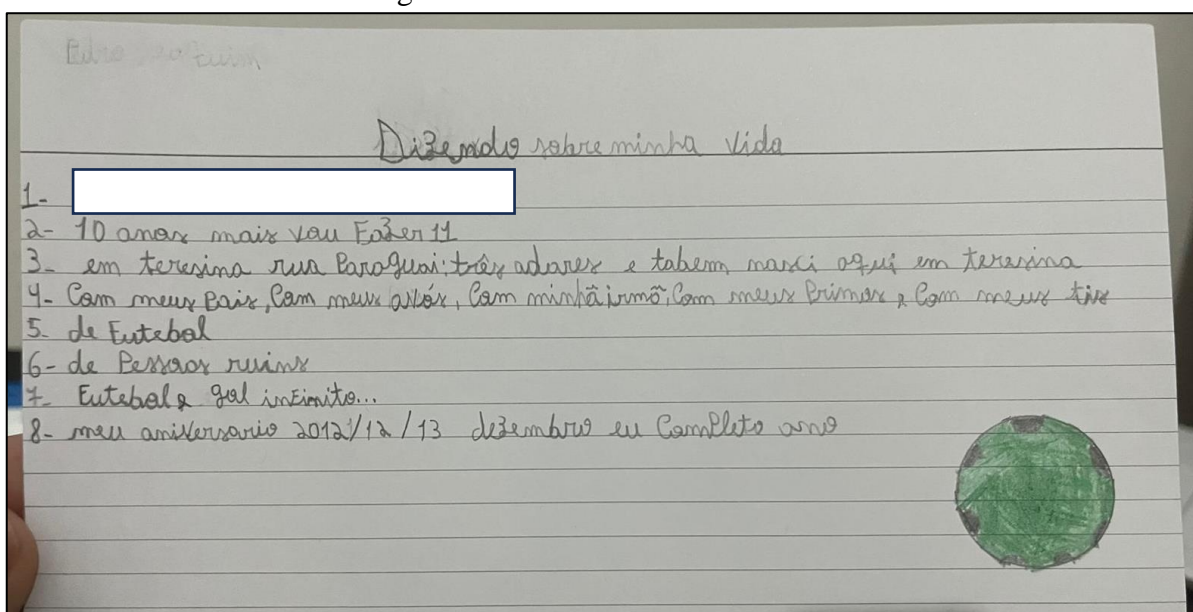 Dizendo sobre minha vida
1-
2- 10 anos mais vou Fazer 11
3- em teresina rua Paraguai; três adares e tabem nasci aqui em teresina
4- Com meus Pais, Com meus avós, Com minhã irmã, Com meus Primos e Com meus tis
5- de Futebol
6- de Pessoas ruins
7- Futebol e gol inFinito...
8- meu aniversario 2012/12/13 dezembro eu Completo ano